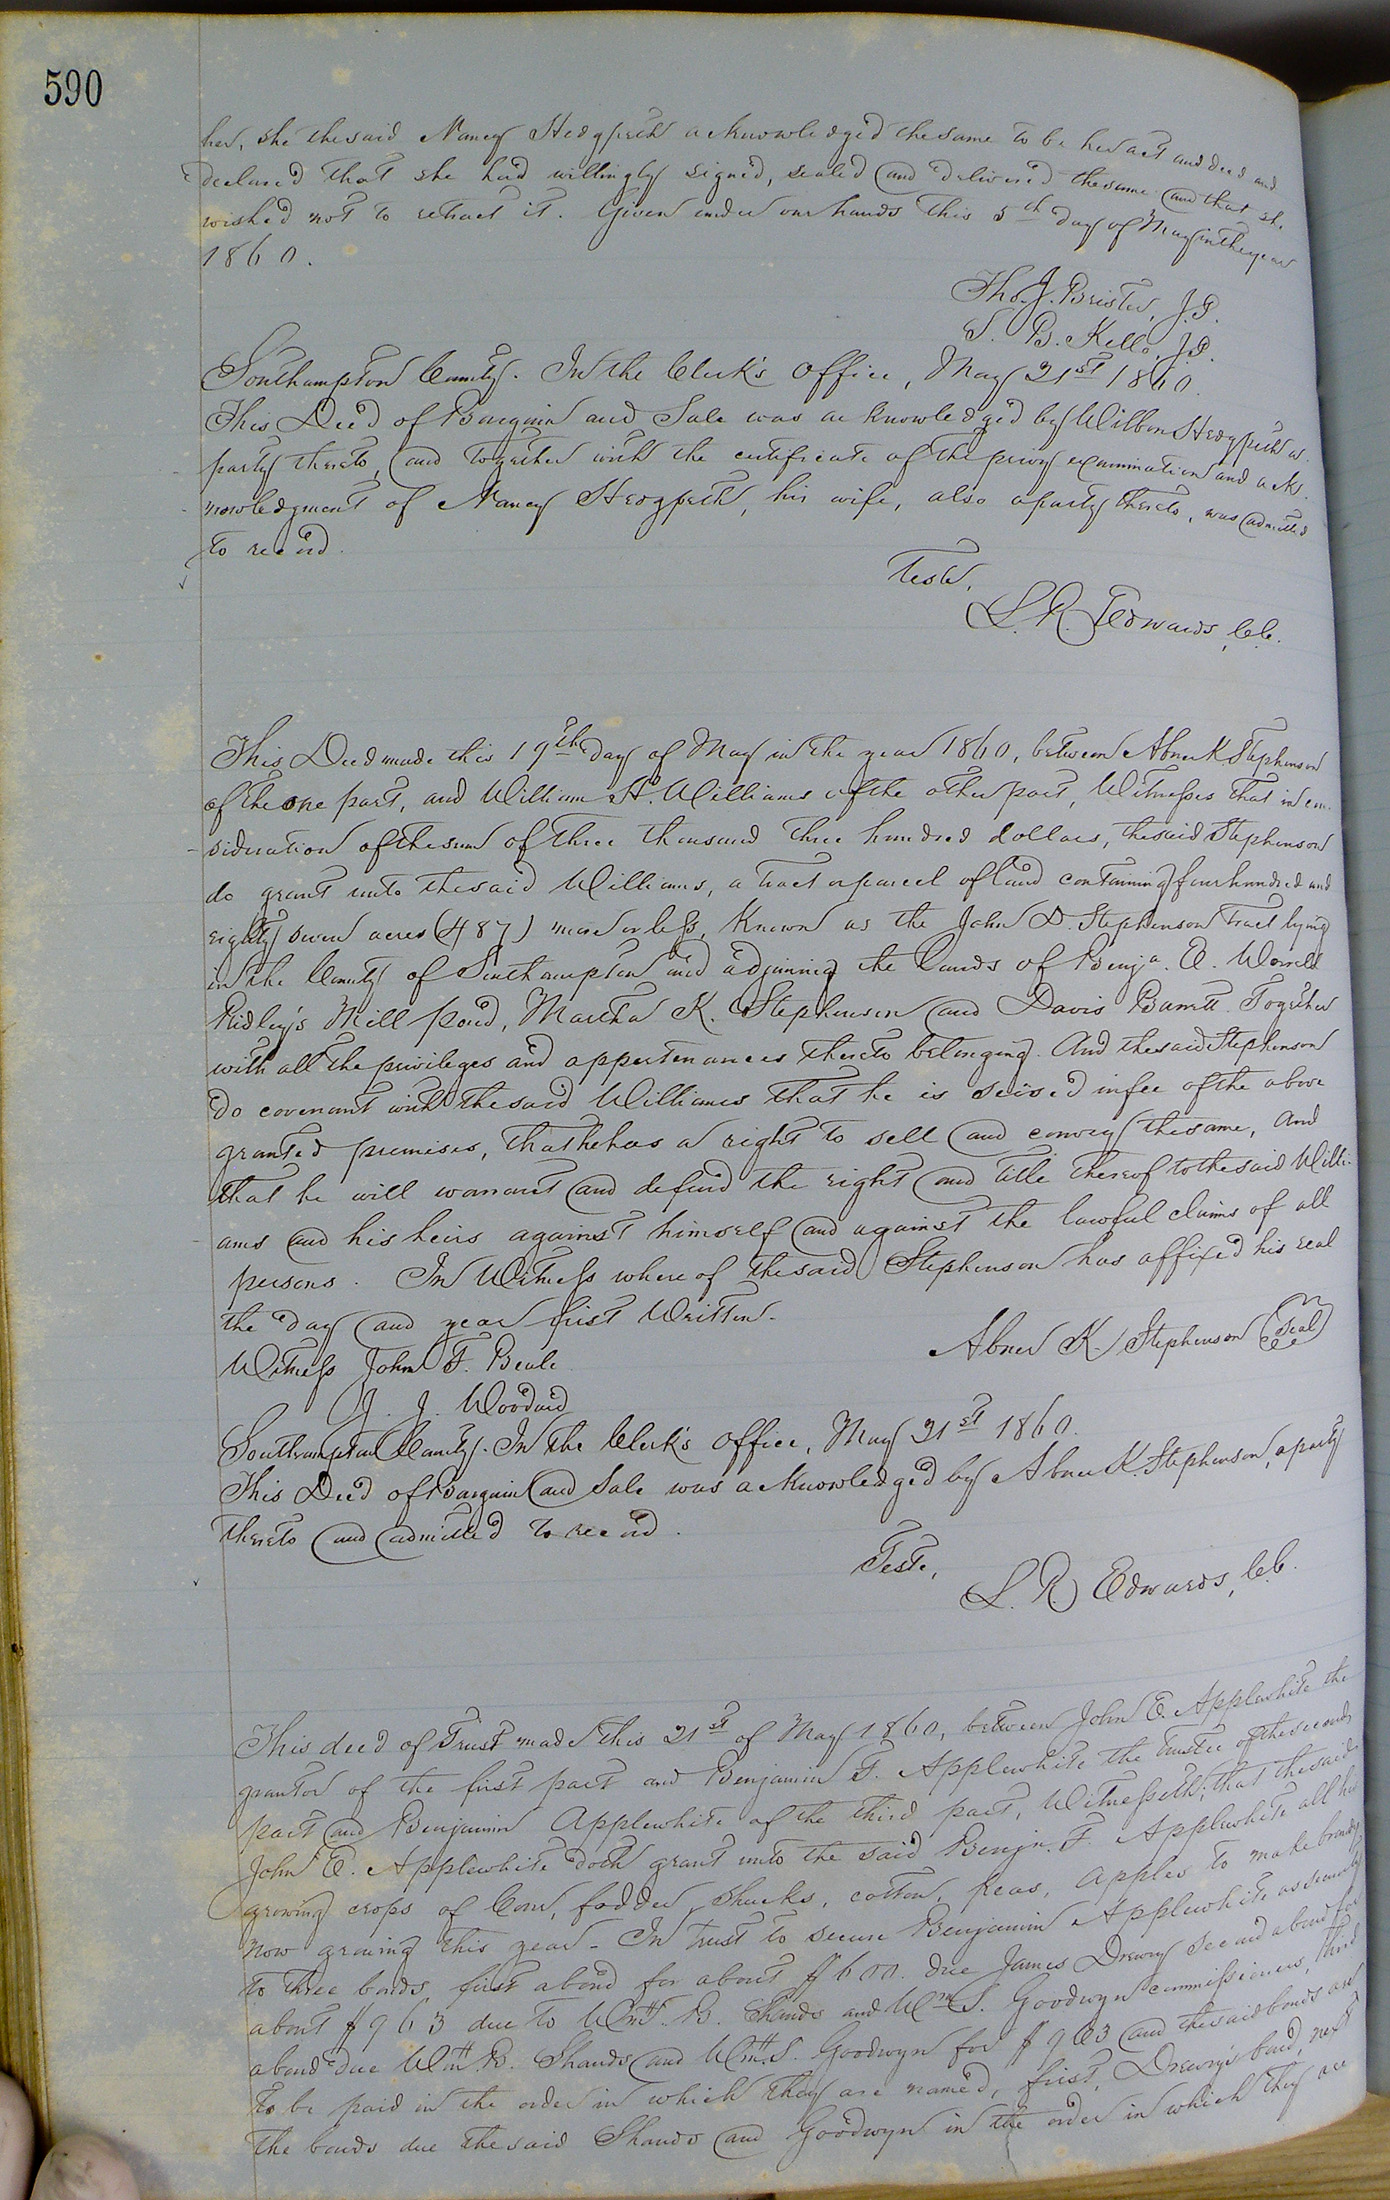 590
her, she the said Nancy Hedgpeth acknowledged the same to be her act and deed and
declared that she had willingly signed, sealed and delivered the same and that she
wished not to retract it. Given under our hands this 5th day of May in the year
1860.
Tho. J. Brister, J.P.
S. B. Kello, J.P.
Southampton County. In the Clerk's Office, May 21st 1860.
This Deed of Bargain and Sale was acknowledged by Hedgpeth a
party thereto, and together with the certificate of the privy examination and ack-
nowledgment of Nancy Hedgpeth, his wife, also a party thereto, was admitted
to record.
Teste,
L. R. Edwards, C.C.
This Deed made this 19th day of May in the year 1860, between Abner K. Stephenson
of the one part, and William H. Williams of the other part, Witnesses that in con-
sideration of the sum of three thousand three hundred dollars, the said Stephenson
do grant unto the said Williams, a tract or parcel of land containing four hundred and
eighty seven acres (487) more or less, Known as the John D. Stephenson Tract lying
in the County of Southampton and adjoining the lands of Benja. E. Worrell
Ridley's Mill pond, Martha K. Stephenson and Davis Barrett. Together
with all the privileges and appertenances thereto belonging. And the said Stephenson
do covenant with the said Williams that he is seised in fee of the above
granted premises, that he has a right to sell and convey the same, and
that he will warrant and defend the right and title thereof to the said Willi-
ams and his heirs against himself and against the lawful claims of all
persons. In Witness where of the said Stephenson has affixed his seal
the day and year first Written.
Abner K. Stephenson (Seal)
Witness John F. Beale
J. J. Woodard
Southampton County. In the Clerk's office, May 21st 1860.
This Deed of Bargain and Sale was acknowledged by Abner K. Stephenson, a party
thereto and admitted to record.
Teste,
L. R. Edwards, C.C.
This deed of Trust made this 21st of May 1860, between John E. Applewhite the
grantor of the first part and Benjamin F. Applewhite the Trustee of the second
part and Benjamin Applewhite of the third part, Witnesseth; that the said
John E. Applewhite doth grant unto the said Benjn. F. Applewhite all his
growing crops of Corn, fodder shucks, cotton, peas, Apples to make brandy
now growing this year - In Trust to secure Benjamin Applewhite as security
to three bonds, first a bond for about $600. due James Drewry second a bond for
about $963 due to Wm. B. Shands and Wm. S. Goodwyn commissioners, third
a bond due Wm B. Shands and Wm. S. Goodwyn for $963 and the said bonds are
to be paid in the order in which they are named, first, Drewry's bond, next
the bonds due the said Shands and Goodwyn in the order in which they are